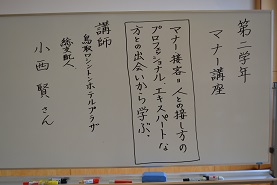 第二学年
マナー講座
マナー接客＝人との接し方の
プロフェッショナル エキスパートな
方との出会いから学ぶ。
講師
鳥取ワシントンホテルプラザ
総支配人
小西 賢さん